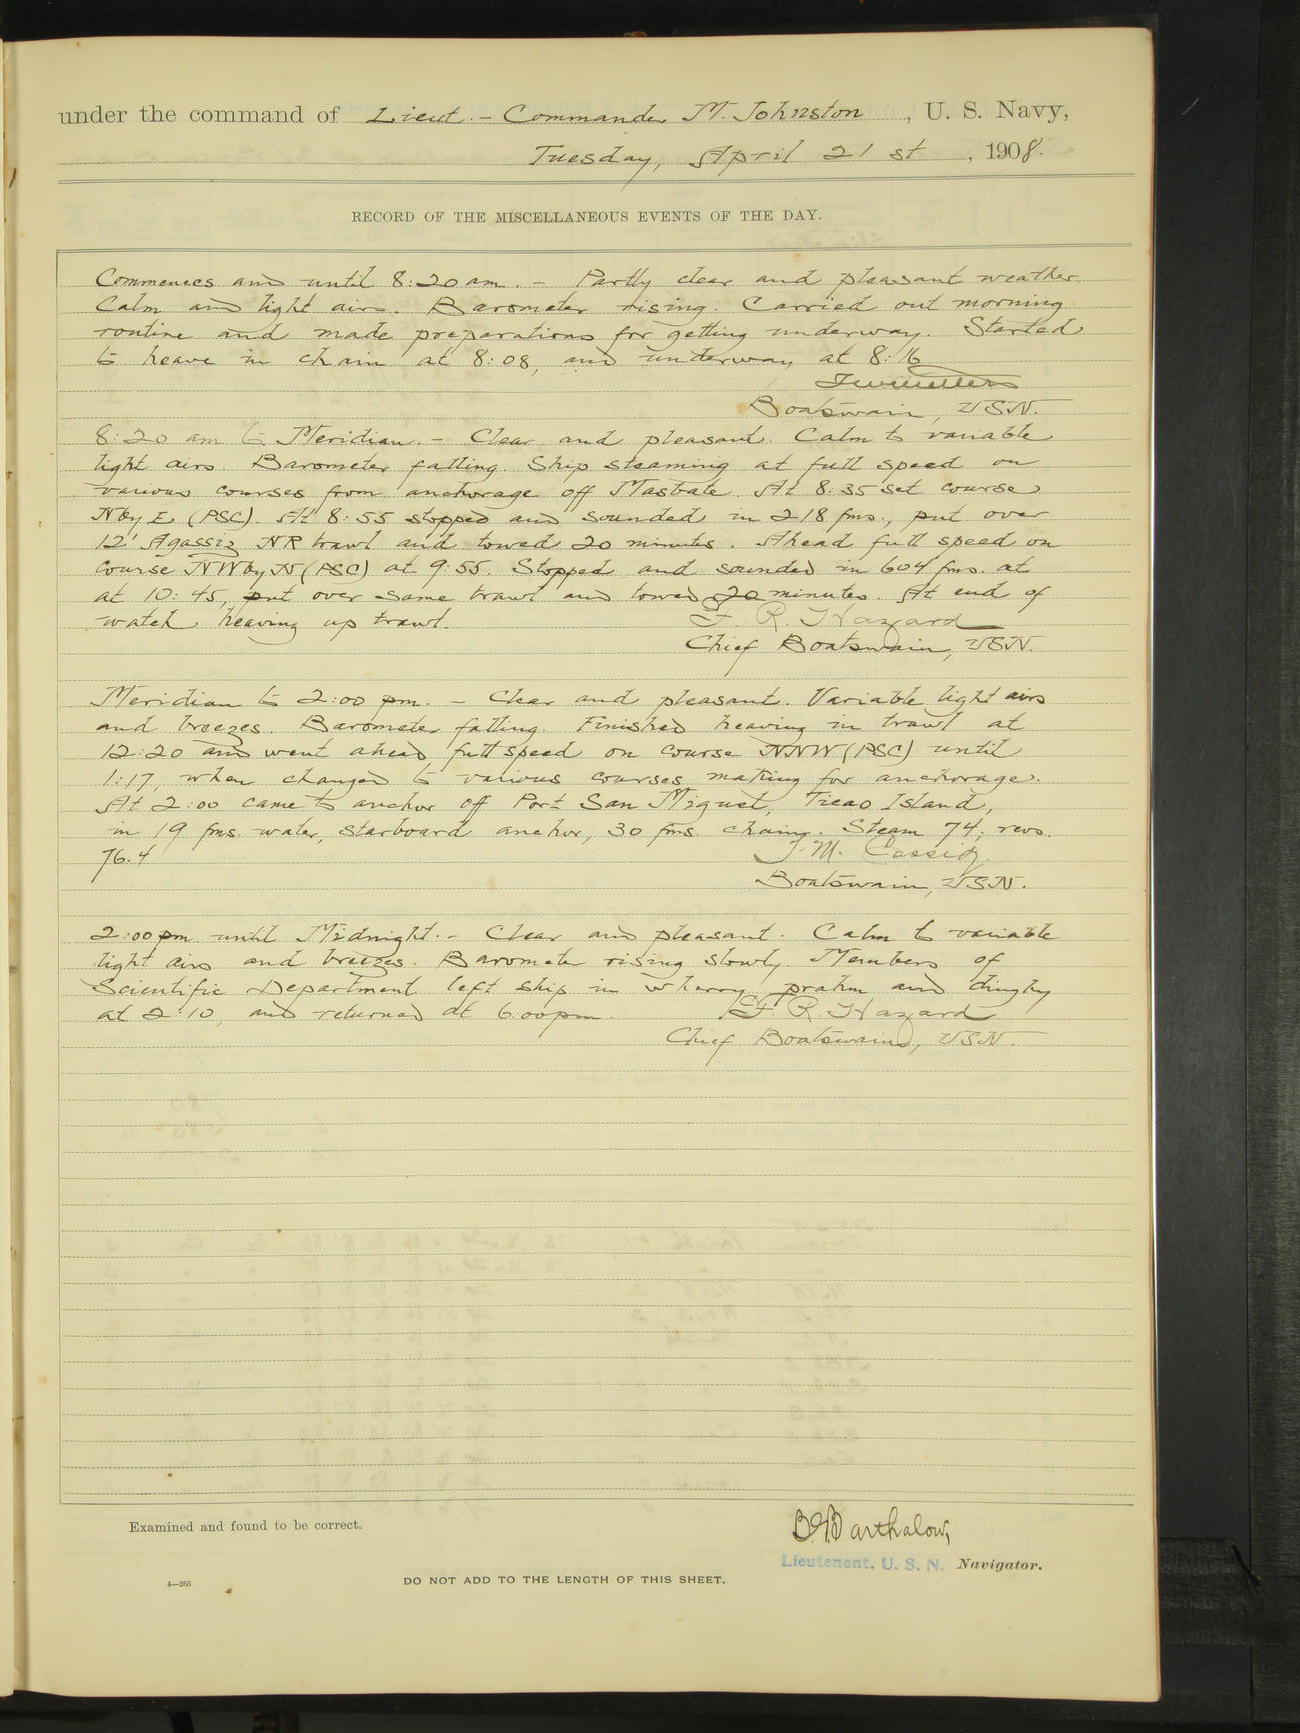 under the command of Lieut. - Commander M. Johnston, U. S. Navy,
Tuesday, April 21 st, 1908.
RECORD OF THE MISCELLANEOUS EVENTS OF THE DAY.
Commences and until 8:20 am. - Partly clear and pleasant weather.
Calm and light airs. Barometer rising. Carried out morning
routine and made preparations for getting underway. Started
to heave in chain at 8:08, and underway at 8:16
Boatswain, USN.
8:20 am to Meridian. - Clear and pleasant. Calm to variable
light airs. Barometer falling. Ship steaming at full speed on
various courses from anchorage off Masbate. At 8:35 set course
N by E (PSC). At 8:55 stopped and sounded in 218 fms., put over
12' Agassiz NR trawl and towed 20 minutes. Ahead full speed on
course NW by N (PSC) at 9:55. Stopped and sounded in 604 fms. at
at 10:45, put over same trawl and towed 20 minutes. At end of
watch heaving up trawl. F. R. Hazard
Chief Boatswain, USN.
Meridian to 2:00 pm. - Clear and pleasant. Variable light airs
and breezes. Barometer falling. Finished heaving in trawl at
12:20 and went ahead full speed on course NNW (PSC) until
1:17, when changed to various courses making for anchorage.
At 2:00 came to anchor off Port San Miguel, Ticao Island,
in 19 fms. water, starboard anchor, 30 fms. chain. Steam 74; revs.
76.4 J. M. Cassidy
Boatswain, USN.
2:00 pm. until Midnight. - Clear and pleasant. Calm to variable
light airs and breezes. Barometer rising slowly Members of
Scientific Department left ship in wherry prahm and dinghy
at 2:10, and returned at 6:00 pm. F. R. Hazard
Chief Boatswain, USN.
Examined and found to be correct.
Lieutenant, U. S. N. Navigator.
4—265
DO NOT ADD TO THE LENGTH OF THIS SHEET.